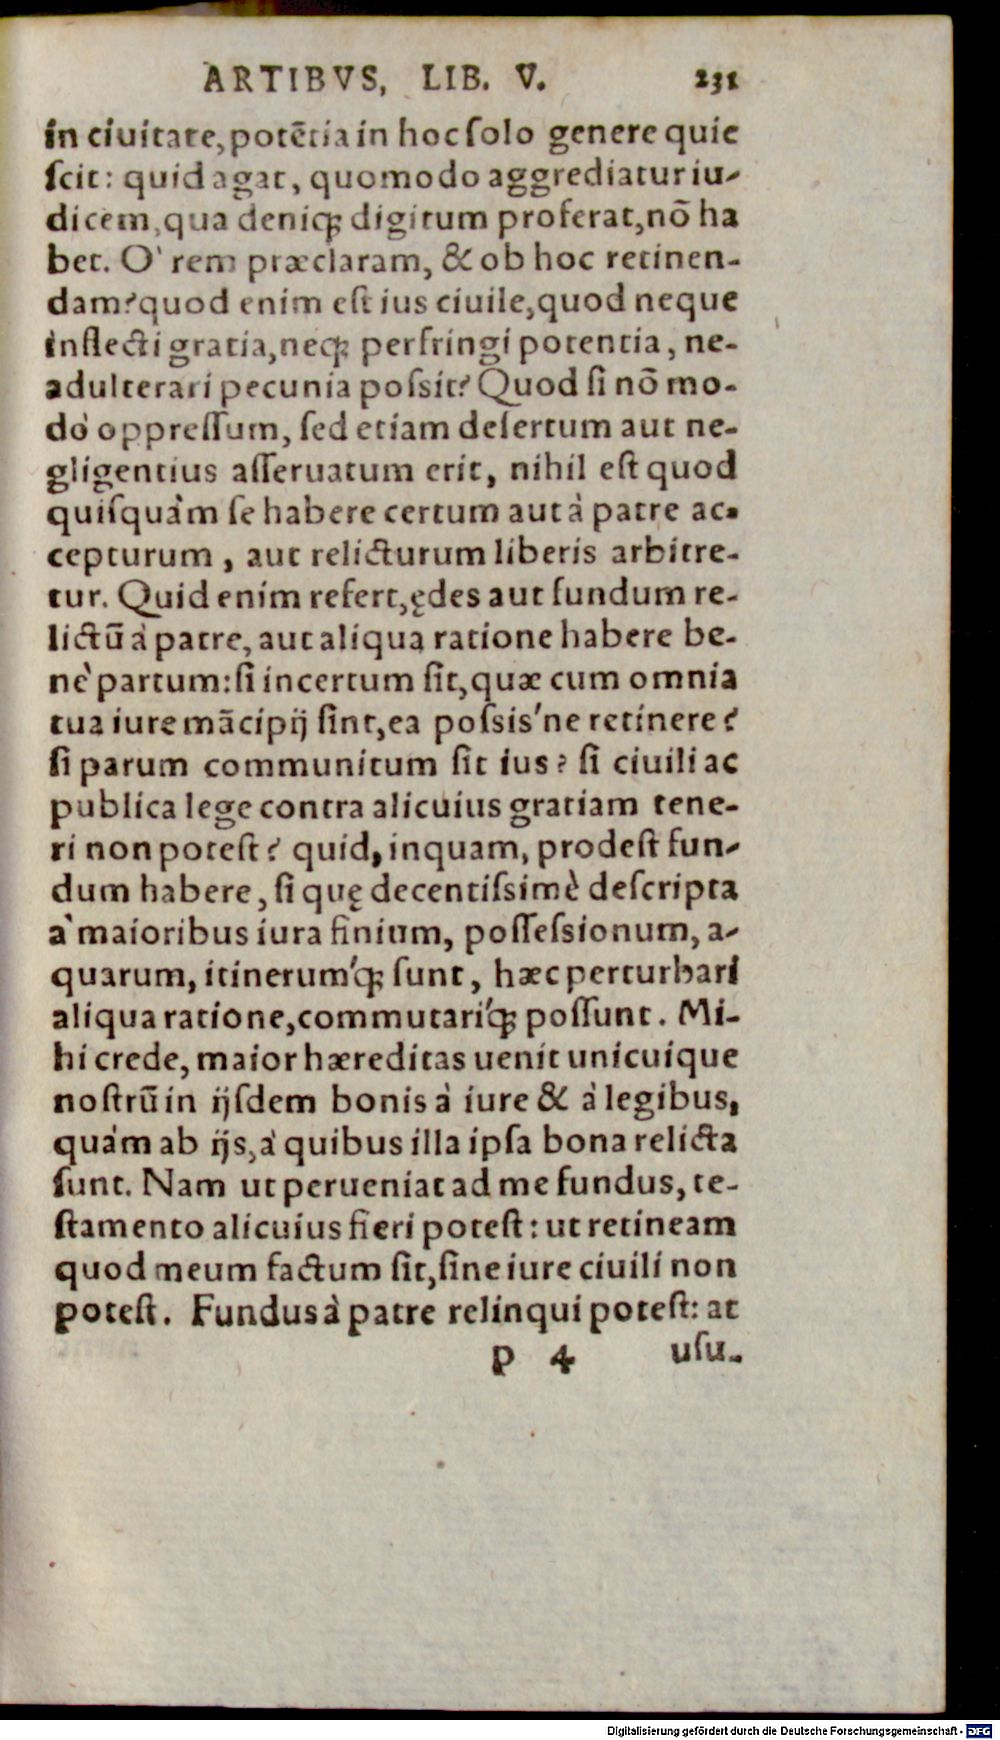 ARTIBVS, LIB. V. 231
in ciuitate, potẽtia in hoc ſolo genere quie
ſcit: quid agat, quomodo aggrediatur iu-
dicem, qua deniq; digitum proferat, nõ ha
bet. O' rem præclaram, & ob hoc retinen-
dam? quod enim eſt ius ciuile, quod neque
inflecti gratia, neq; perfringi potentia, ne-
adulterari pecunia poſsit? Quod ſi nõ mo-
dò oppreſſum, ſed etiam deſertum aut ne-
gligentius aſſeruatum erit, nihil eſt quod
quiſquàm ſe habere certum aut à patre ac-
cepturum, aut relicturum liberis arbitre-
tur. Quid enim refert, ędes aut fundum re-
lictũ à patre, aut aliqua ratione habere be-
nè partum: ſi incertum ſit, quæ cum omnia
tua iure mãcipij ſint, ea poſsis'ne retinere?
ſi parum communitum ſit ius? ſi ciuili ac
publica lege contra alicuius gratiam tene-
ri non poteſt? quid, inquam, prodeſt fun-
dum habere, ſi quę decentiſsimè deſcripta
à maioribus iura finium, poſſeſsionum, a-
quarum, itinerum'q; ſunt, hæc perturbari
aliqua ratione, commutari'q; poſſunt. Mi-
hi crede, maior hæreditas uenit unicuique
noſtrũ in ijſdem bonis à iure & à legibus,
quàm ab ijs, à quibus illa ipſa bona relicta
ſunt. Nam ut perueniat ad me fundus, te-
ſtamento alicuius fieri poteſt: ut retineam
quod meum factum ſit, ſine iure ciuili non
poteſt. Fundus à patre relinqui poteſt: at
p 4 uſu-
Digitalisierung gefördert durch die Deutsche Forschungsgemeinschaft - DFG